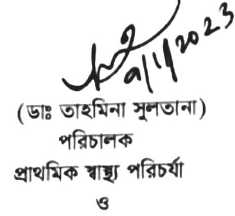 ৯/1/2023
(ডাঃ তাহমিনা সুলতানা)
পরিচালক
প্রাথমিক স্বাস্থ্য পরিচর্যা
ও